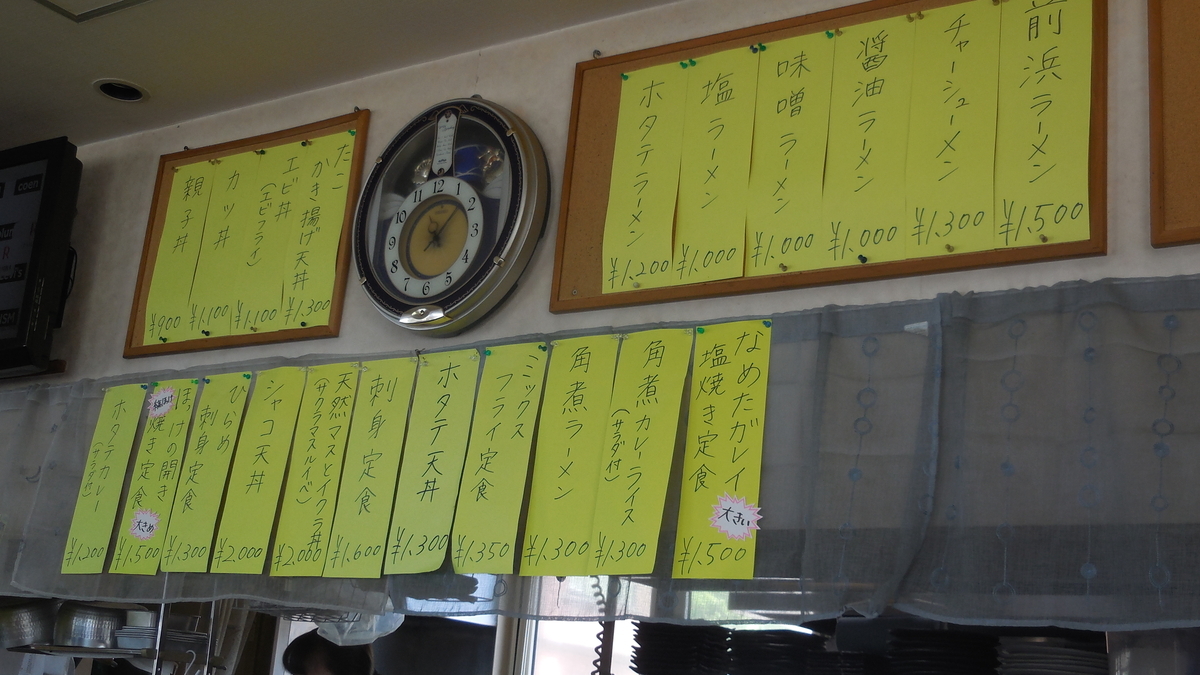 前浜ラーメン
¥1.500
チャーシューメン
¥1.300
醤油ラーメン
¥1.000
味噌ラーメン
¥1.000
塩ラーメン
¥1.000
ホタテラーメン
¥1.200
たこ
かき揚げ天丼
¥1.300
エビ丼
(エビフライ)
¥1.100
カツ丼
¥1.100
親子丼
¥900
12
1
2
3
4
5
6
7
8
9
10
11
なめたガレイ
塩焼き定食
大きい
¥1.500
角煮カレーライス
(サラダ付)
¥1.300
角煮ラーメン
¥1.300
ミックス
フライ定食
¥1.350
ホタテ天丼
¥1.300
刺身定食
¥1.600
天然マスとイクラ丼
(サクラマスルイベ)
¥2.000
シャコ天丼
¥2.000
ひらめ
刺身定食
¥1.300
ほっけの開き
焼き定食
大きめ
¥1.500
ホタテカレー
(サラダ付)
¥1.200